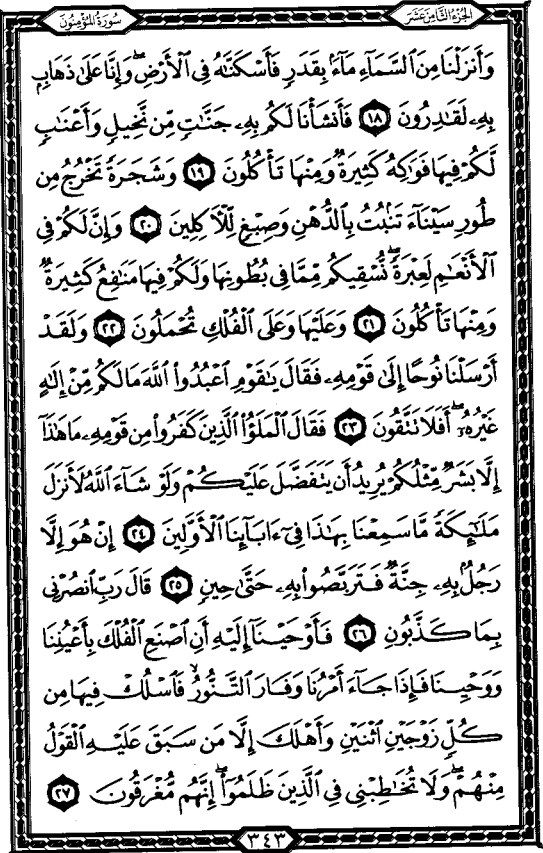 سُورَةُ المُؤْمِنُونَ
الجُزْءُ الثَّامِنَ عَشَرَ
وَأَنزَلْنَا مِنَ ٱلسَّمَآءِ مَآءًۢ بِقَدَرٍ فَأَسْكَنَّٰهُ فِى ٱلْأَرْضِۖ وَإِنَّا عَلَىٰ ذَهَابٍۭ
بِهِۦ لَقَٰدِرُونَ ١٨ فَأَنشَأْنَا لَكُم بِهِۦ جَنَّٰتٍ مِّن نَّخِيلٍ وَأَعْنَٰبٍ
لَّكُمْ فِيهَا فَوَٰكِهُ كَثِيرَةٌ وَمِنْهَا تَأْكُلُونَ ١٩ وَشَجَرَةً تَخْرُجُ مِن
طُورِ سَيْنَآءَ تَنۢبُتُ بِٱلدُّهْنِ وَصِبْغٍ لِّلْءَاكِلِينَ ٢٠ وَإِنَّ لَكُمْ فِى
ٱلْأَنْعَٰمِ لَعِبْرَةًۖ نُّسْقِيكُم مِّمَّا فِى بُطُونِهَا وَلَكُمْ فِيهَا مَنَٰفِعُ كَثِيرَةٌ
وَمِنْهَا تَأْكُلُونَ ٢١ وَعَلَيْهَا وَعَلَى ٱلْفُلْكِ تُحْمَلُونَ ٢٢ وَلَقَدْ
أَرْسَلْنَا نُوحًا إِلَىٰ قَوْمِهِۦ فَقَالَ يَٰقَوْمِ ٱعْبُدُوا۟ ٱللَّهَ مَا لَكُم مِّنْ إِلَٰهٍ
غَيْرُهُۥٓۖ أَفَلَا تَتَّقُونَ ٢٣ فَقَالَ ٱلْمَلَؤُا۟ ٱلَّذِينَ كَفَرُوا۟ مِن قَوْمِهِۦ مَا هَٰذَآ
إِلَّا بَشَرٌ مِّثْلُكُمْ يُرِيدُ أَن يَتَفَضَّلَ عَلَيْكُمْ وَلَوْ شَآءَ ٱللَّهُ لَأَنزَلَ
مَلَٰٓئِكَةً مَّا سَمِعْنَا بِهَٰذَا فِىٓ ءَابَآئِنَا ٱلْأَوَّلِينَ ٢٤ إِنْ هُوَ إِلَّا
رَجُلٌۢ بِهِۦ جِنَّةٌ فَتَرَبَّصُوا۟ بِهِۦ حَتَّىٰ حِينٍ ٢٥ قَالَ رَبِّ ٱنصُرْنِى
بِمَا كَذَّبُونِ ٢٦ فَأَوْحَيْنَآ إِلَيْهِ أَنِ ٱصْنَعِ ٱلْفُلْكَ بِأَعْيُنِنَا
وَوَحْيِنَا فَإِذَا جَآءَ أَمْرُنَا وَفَارَ ٱلتَّنُّورُۙ فَٱسْلُكْ فِيهَا مِن
كُلٍّ زَوْجَيْنِ ٱثْنَيْنِ وَأَهْلَكَ إِلَّا مَن سَبَقَ عَلَيْهِ ٱلْقَوْلُ
مِنْهُمْۖ وَلَا تُخَٰطِبْنِى فِى ٱلَّذِينَ ظَلَمُوٓا۟ۖ إِنَّهُم مُّغْرَقُونَ ٢٧
٣٤٣